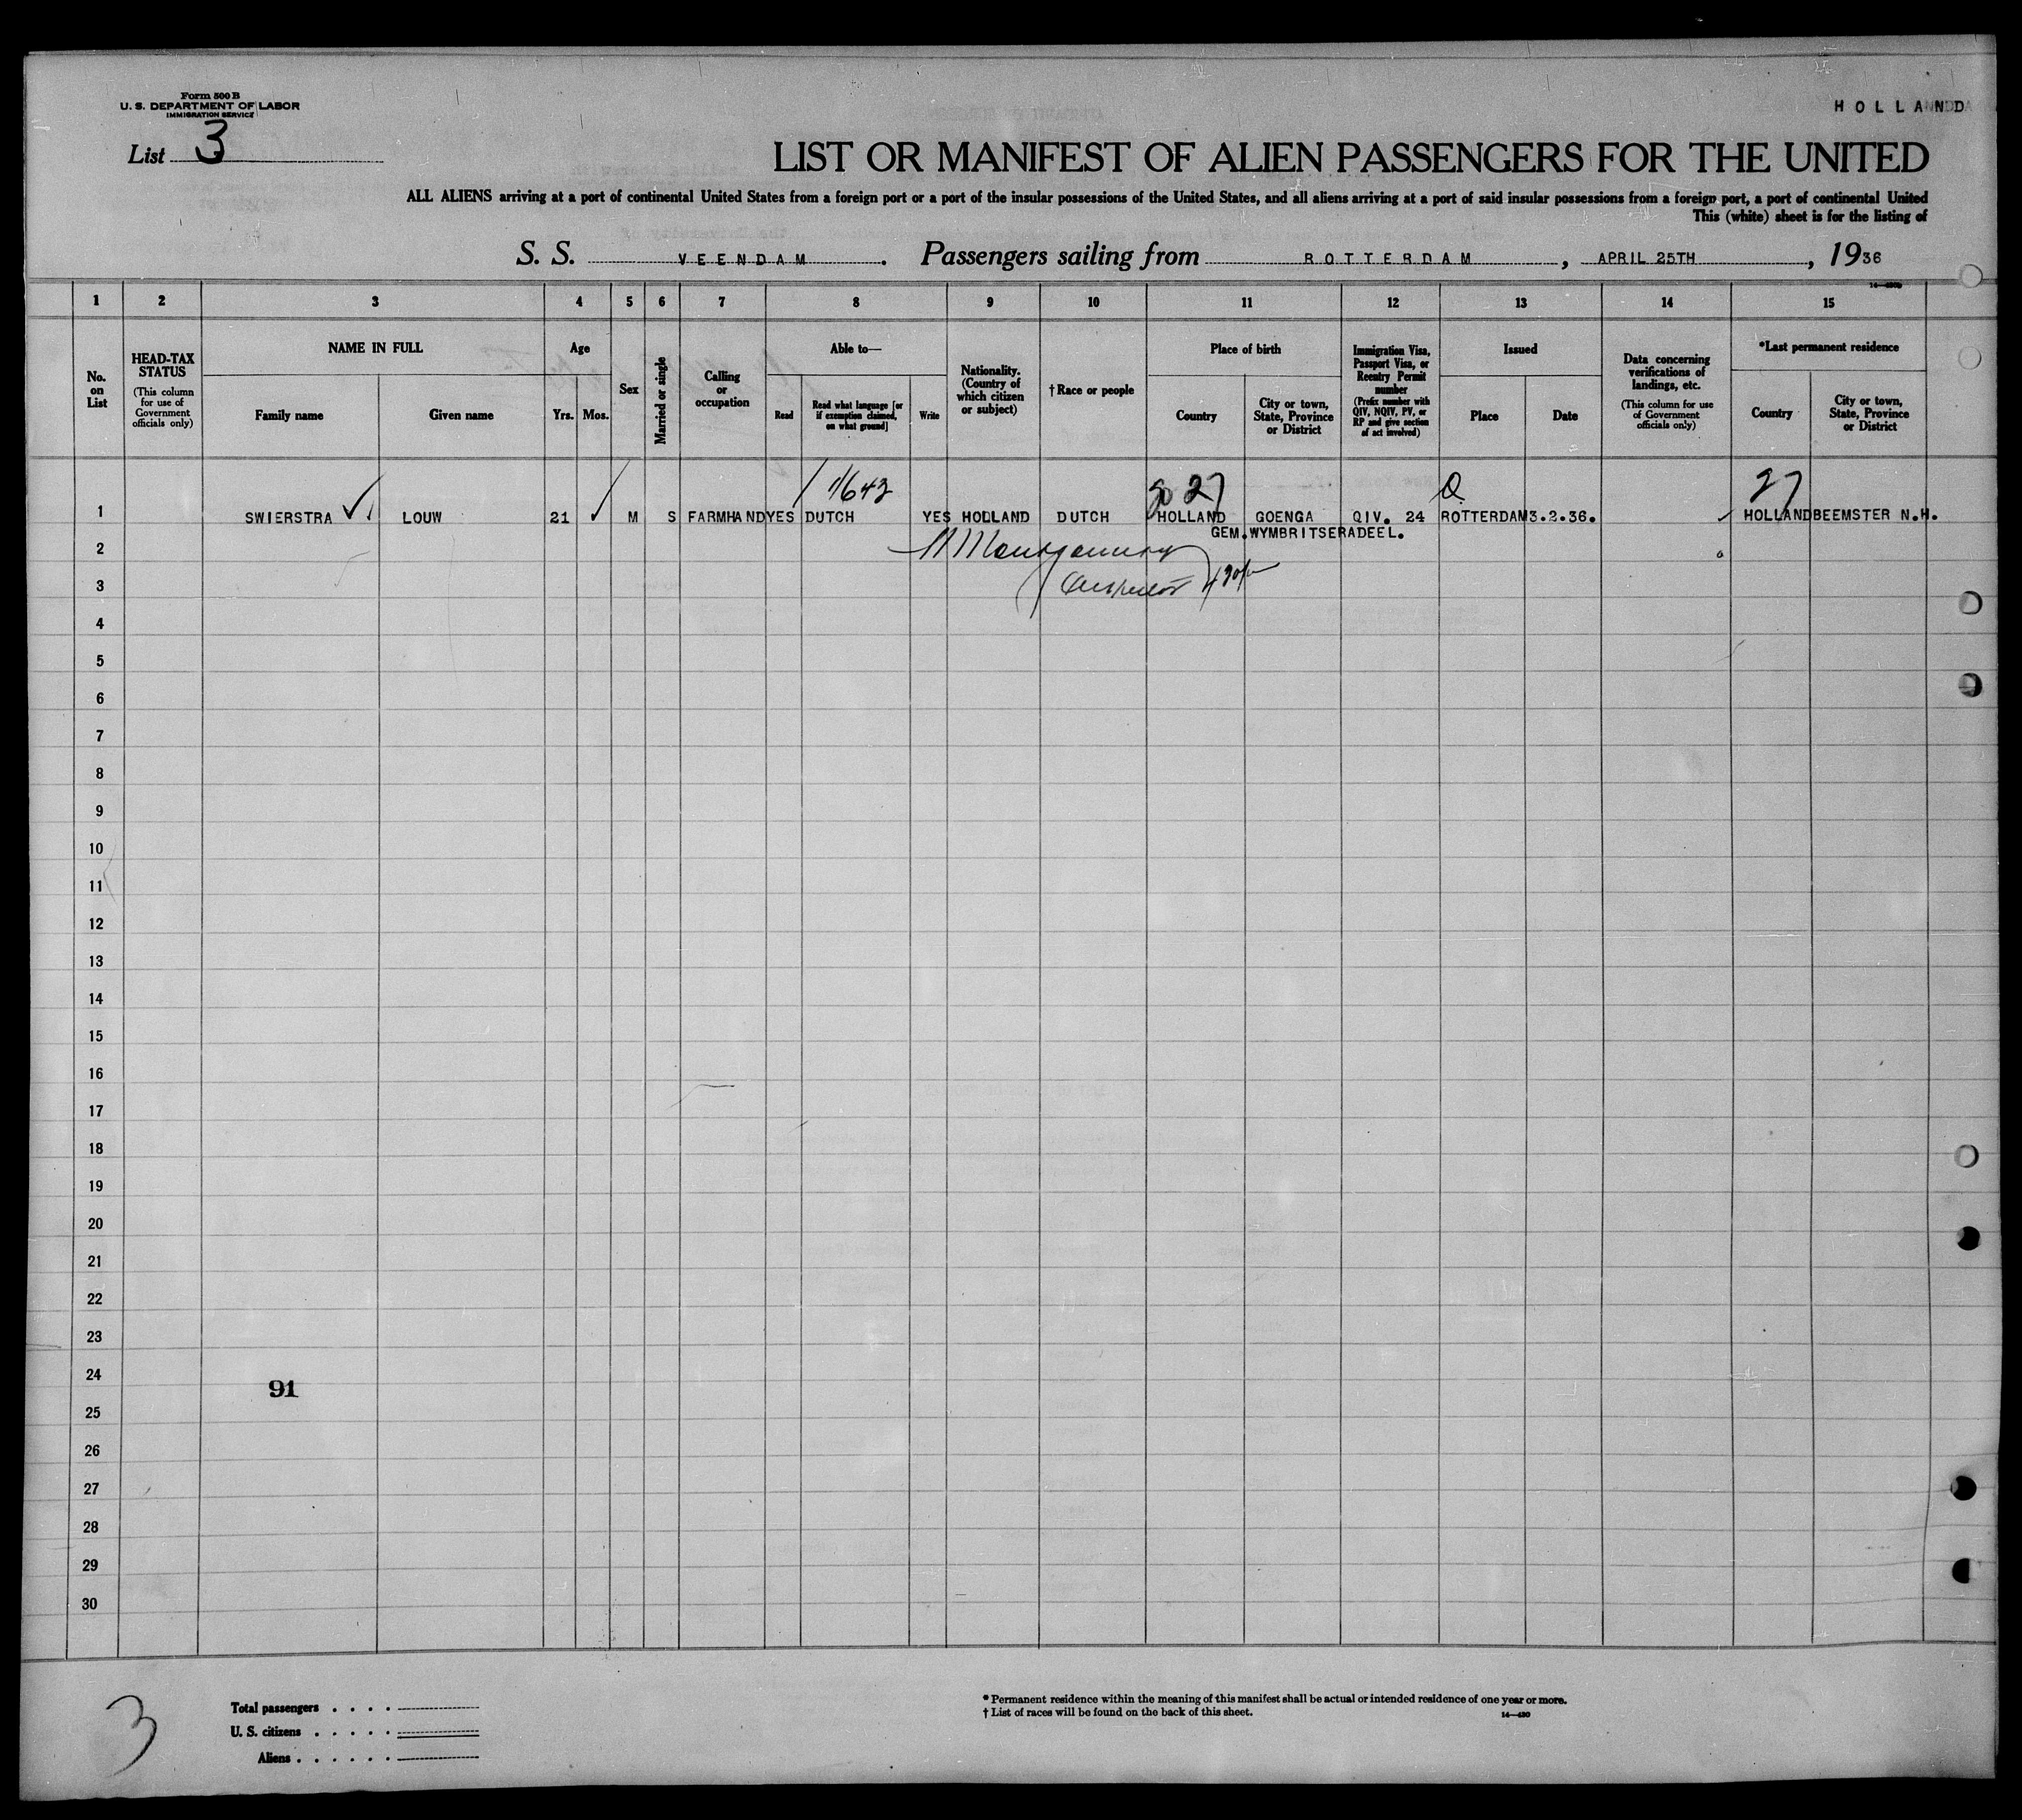 Form 500 B
U. S. DEPARTMENT OF LABOR
IMMIGRATION SERVICE
HOLLAND
List 3
LIST OR MANIFEST OF ALIEN PASSENGERS FOR THE UNITED
ALL ALIENS arriving at a port of continental United States from a foreign port or a port of the insular possessions of the United States, and all aliens arriving at a port of said insular possessions from a foreign port, a port of continental United
This (white) sheet is for the listing of
S. S. VEENDAM. Passengers sailing from ROTTERDAM, APRIL 25TH, 1936
1 2 3 4 5 6 7 8 9 10 11 12 13 14 15
No. on List
HEAD-TAX STATUS
(This column for use of Government officials only)
NAME IN FULL
Family name
Given name
Age
Yrs. Mos.
Sex
Married or single
Calling or occupation
Able to—
Read
Read what language [or if exemption claimed, on what ground]
Write
Nationality. (Country of which citizen or subject)
† Race or people
Place of birth
Country
City or town, State, Province or District
Immigration Visa, Passport Visa, or Reentry Permit number
(Prefix number with QIV, NQIV, PV, or RP and give section of act involved)
Issued
Place
Date
Data concerning verifications of landings, etc.
(This column for use of Government officials only)
*Last permanent residence
Country
City or town, State, Province or District
27 27
1 SWIERSTRA ✓ LOUW 21 ✓ M S FARMHAND YES DUTCH YES HOLLAND DUTCH HOLLAND GOENGA QIV. 24 ROTTERDAM 3.2.36. ✓ HOLLAND BEEMSTER N.H.
GEM.WYMBRITSERADEEL.
2
Montgomery
3
Inspector
4
5
6
7
8
9
10
11
12
13
14
15
16
17
18
19
20
21
22
23
24
91
25
26
27
28
29
30
3
Total passengers
U. S. citizens
Aliens
* Permanent residence within the meaning of this manifest shall be actual or intended residence of one year or more.
† List of races will be found on the back of this sheet.
14—430